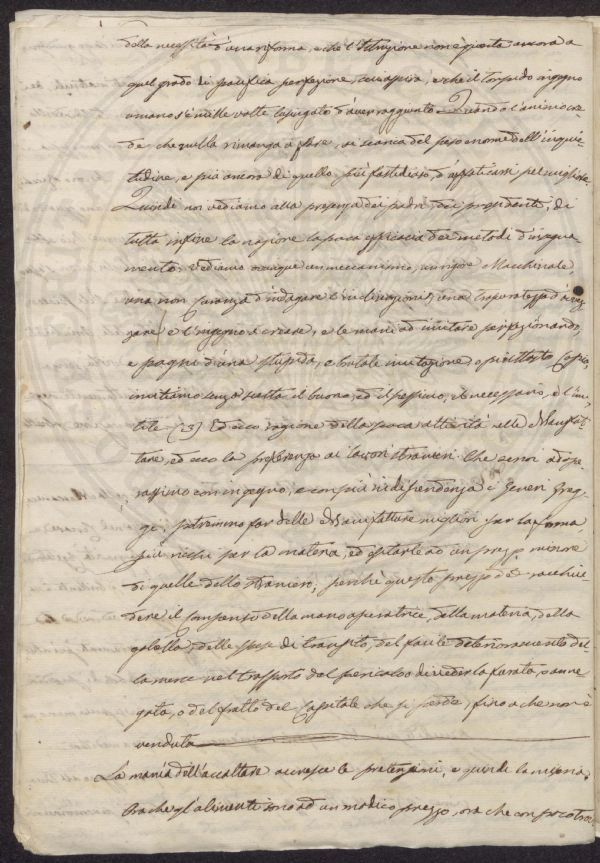 della necessità d'una riforma, e che l'Istruzione non è giunta ancora a
quel grado di pacifica perfezione, cui aspira, e che il torpido ingegno
umano s'è mille volte lusingato d'aver raggiunto. Quando l'animo cre-
de che nulla rimanga a fare, si scarica del peso enome dell'inquie-
tudine, e più ancora di quello più fastidioso, d'affaticarsi pel migliore
Quindi noi vediamo alla presenza dei padri, dei presidenti, di
tutta infine la nazione la poca efficacia dei metodi d'insegna-
mento; vediamo ovunque un meccanismo, un Macchinale
una non curanza d'indagare l'inclinazioni, una d'avvez-
zare e l'ingegno a creare, e le mani ad imitare perfezionando,
e paghi d'una stupida, e brutale imitazione, o piuttosto Copia,
imitiamo senza scelta il buono, ed il pessimo, il necessario, e l'inu-
tile (23) Ed ecco ragione della poca attività nelle Manifat-
ture, ed ecco la preferenza ai lavori stranieri. Che se noi adope-
rassimo con ingegno, e con più indipendenza i Generi greg-
gi, potremmo far delle Manifatture migliori per la forma,
più ricche per la materia, ed esitarle ad un prezzo minore
di quelle dello Straniero; perchè questo prezzo dè racchiu-
dere il compenso della mano operatrice, della materia, della
gabella, delle spese di transito, del facile deterioramento del-
la merce nel trasporto del pericolo di vederla furata, o anne-
gata, o del frutto del Capitale che si perde, fino a che non è
venduta
La mania dell'accattare accresce le pretensioni, e quindi la miseria.
Ora che gl'alimenti sono ad un modico prezzo, ora che con poco